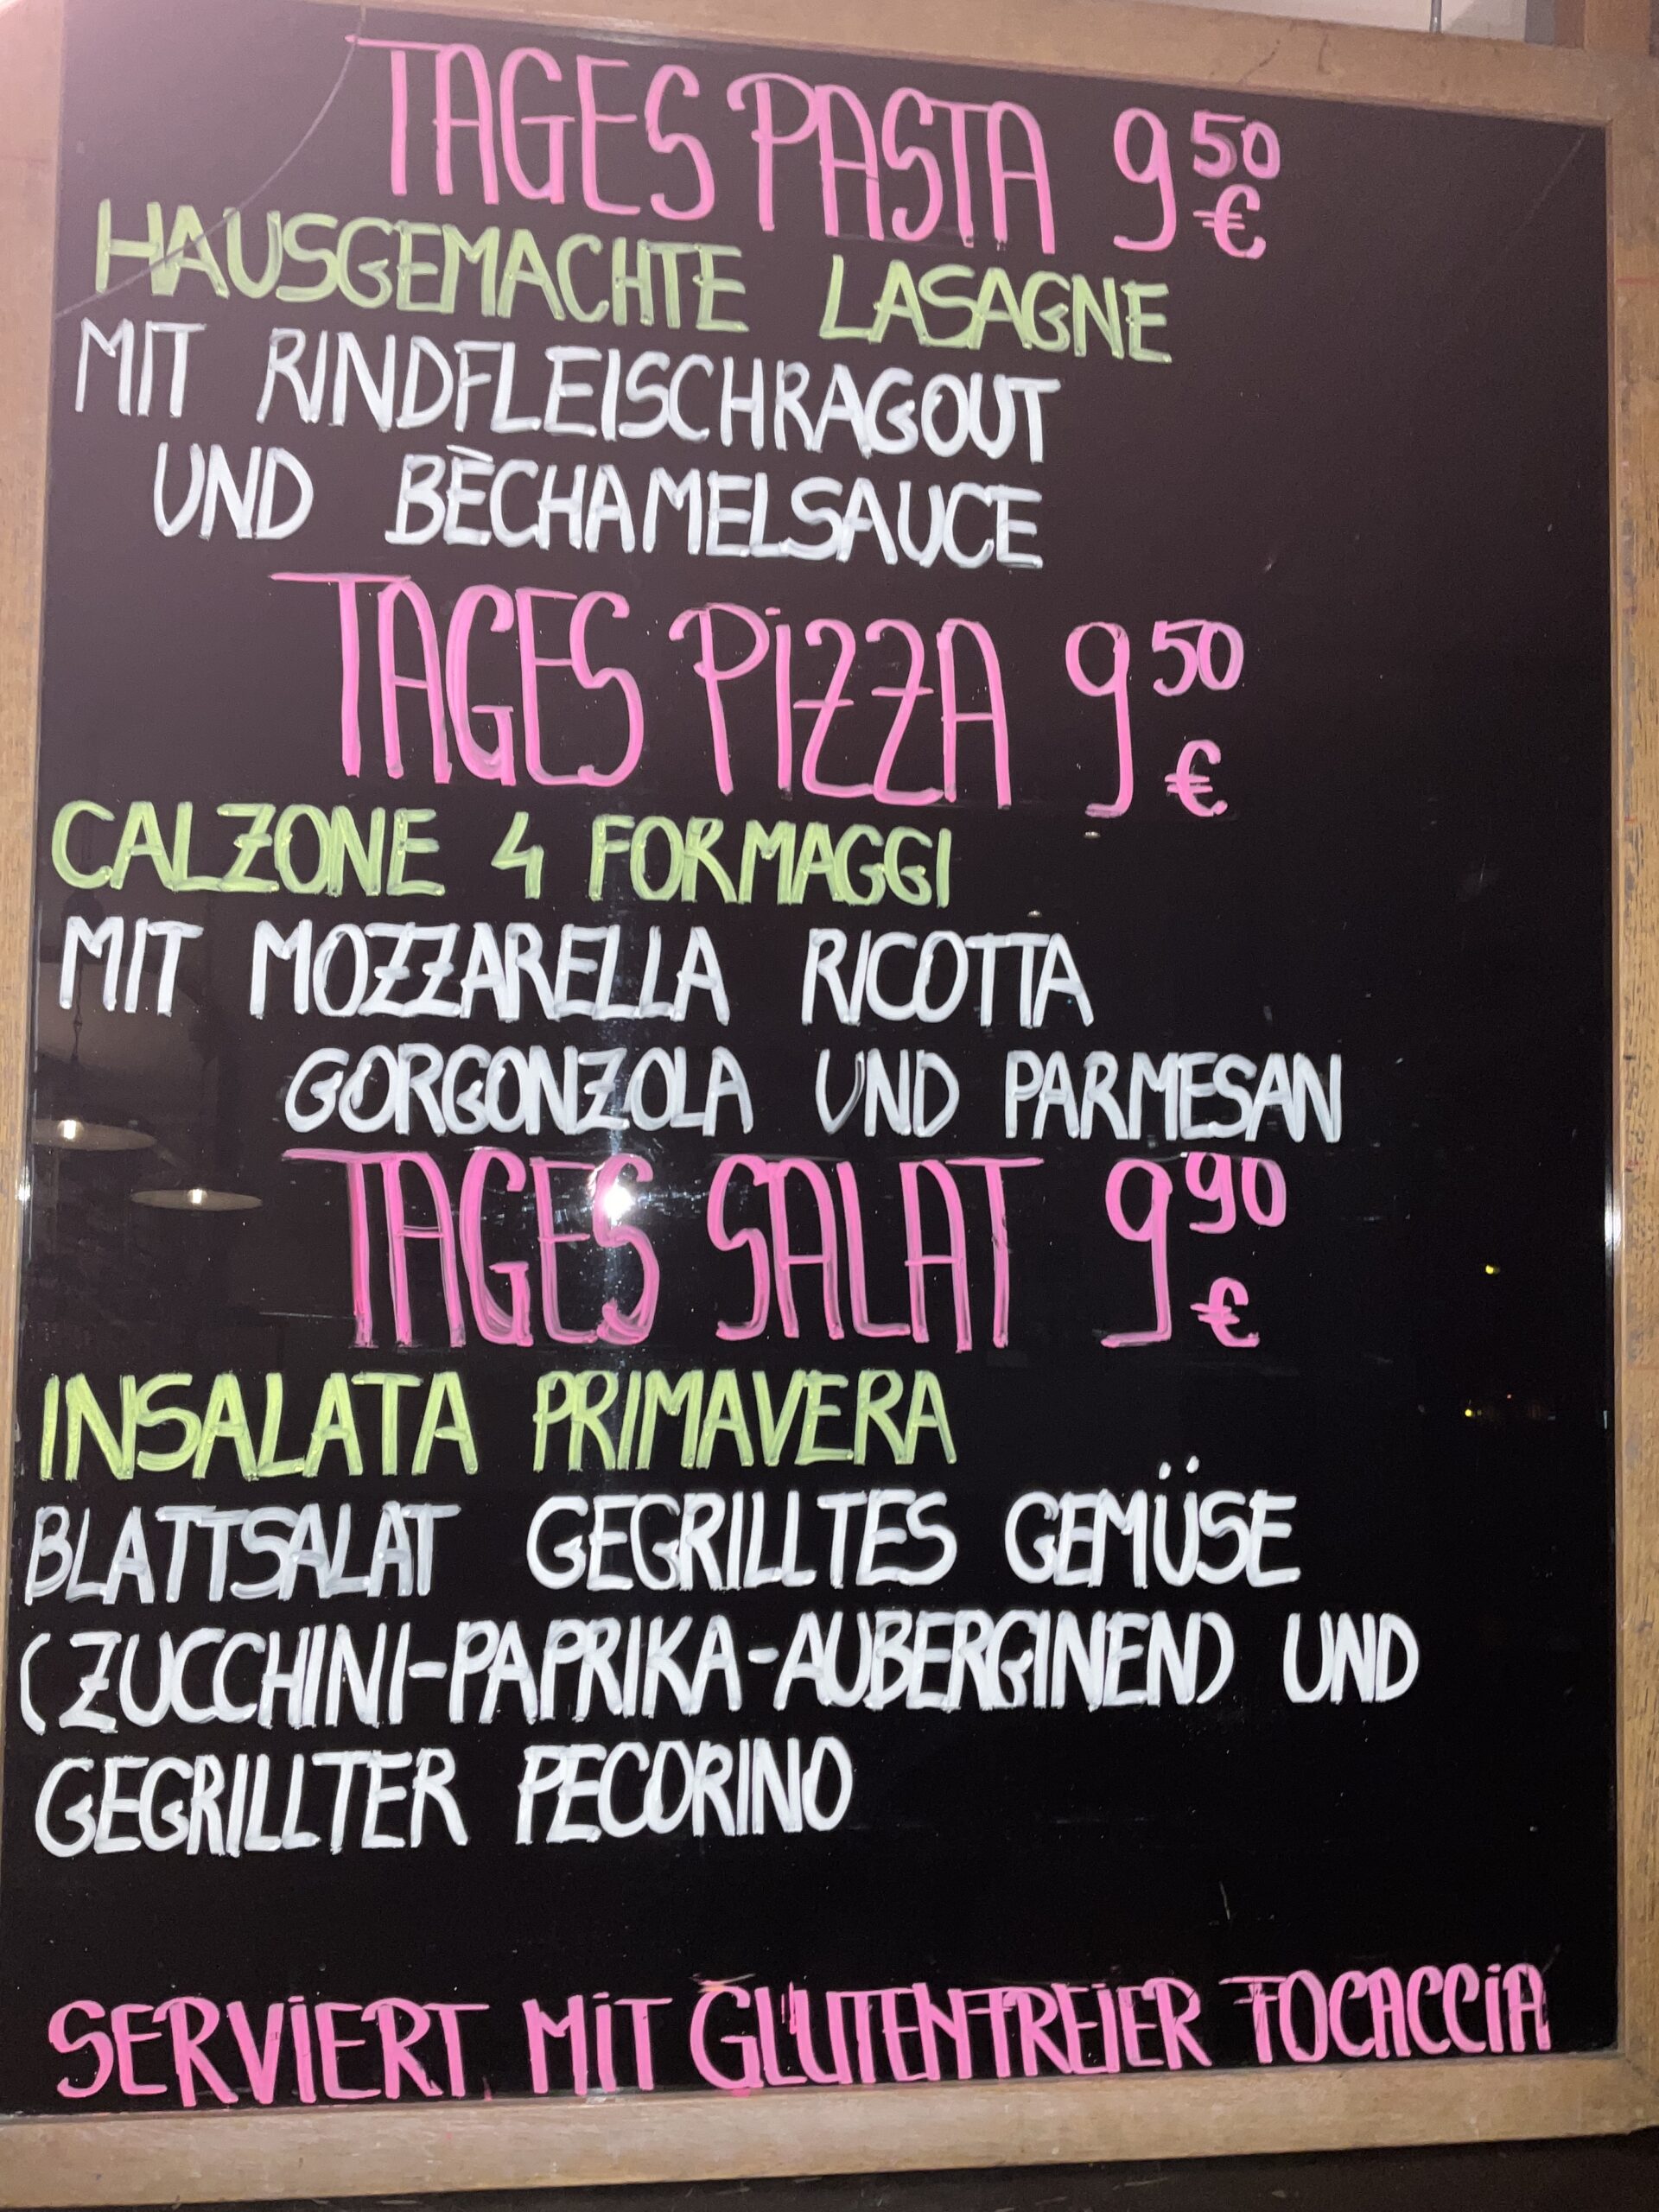 TAGES PASTA 9 50 €
HAUSGEMACHTE LASAGNE
MIT RINDFLEISCHRAGOUT
UND BÈCHAMELSAUCE
TAGES PiZZA 9 50 €
CALZONE 4 FORMAGGI
MIT MOZZARELLA RICOTTA
GORGONZOLA UND PARMESAN
TAGES SALAT 9 90 €
INSALATA PRIMAVERA
BLATTSALAT GEGRILLTES GEMÜSE
(ZUCCHINI-PAPRIKA-AUBERGINEN) UND
GEGRILLTER PECORINO
SERViERT MiT GLUTENFREiER FOCACCiA